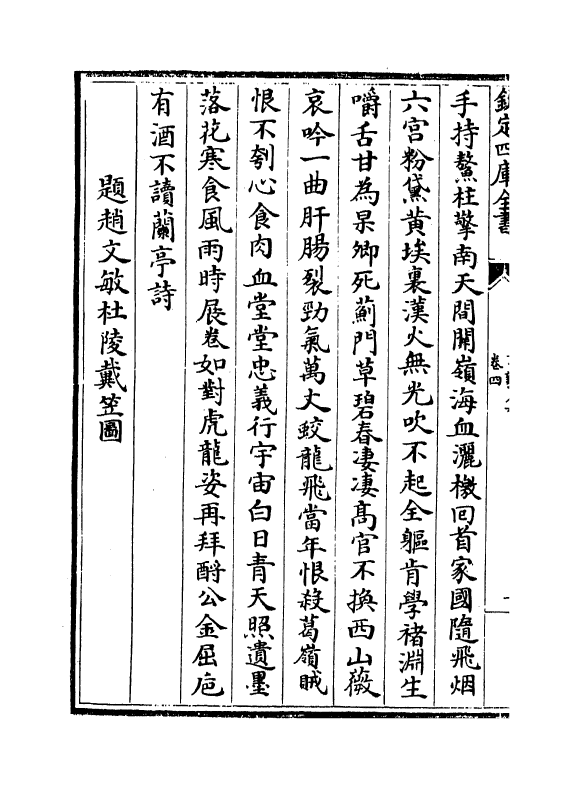 欽定四庫全書
卷四
手持鰲柱擎南天間關嶺海血灑檄回首家國隨飛烟
六宫粉黛黄埃裏漢火無光吹不起全軀肯學褚淵生
嚼舌甘為杲卿死薊門草碧春凄凄髙官不換西山薇
哀吟一曲肝腸裂勁氣萬丈蛟龍飛當年恨殺葛嶺賊
恨不刳心食肉血堂堂忠義行宇宙白日青天照遺墨
落花寒食風雨時展卷如對虎龍姿再拜酹公金屈卮
有酒不讀蘭亭詩
題趙文敏杜陵戴笠圖